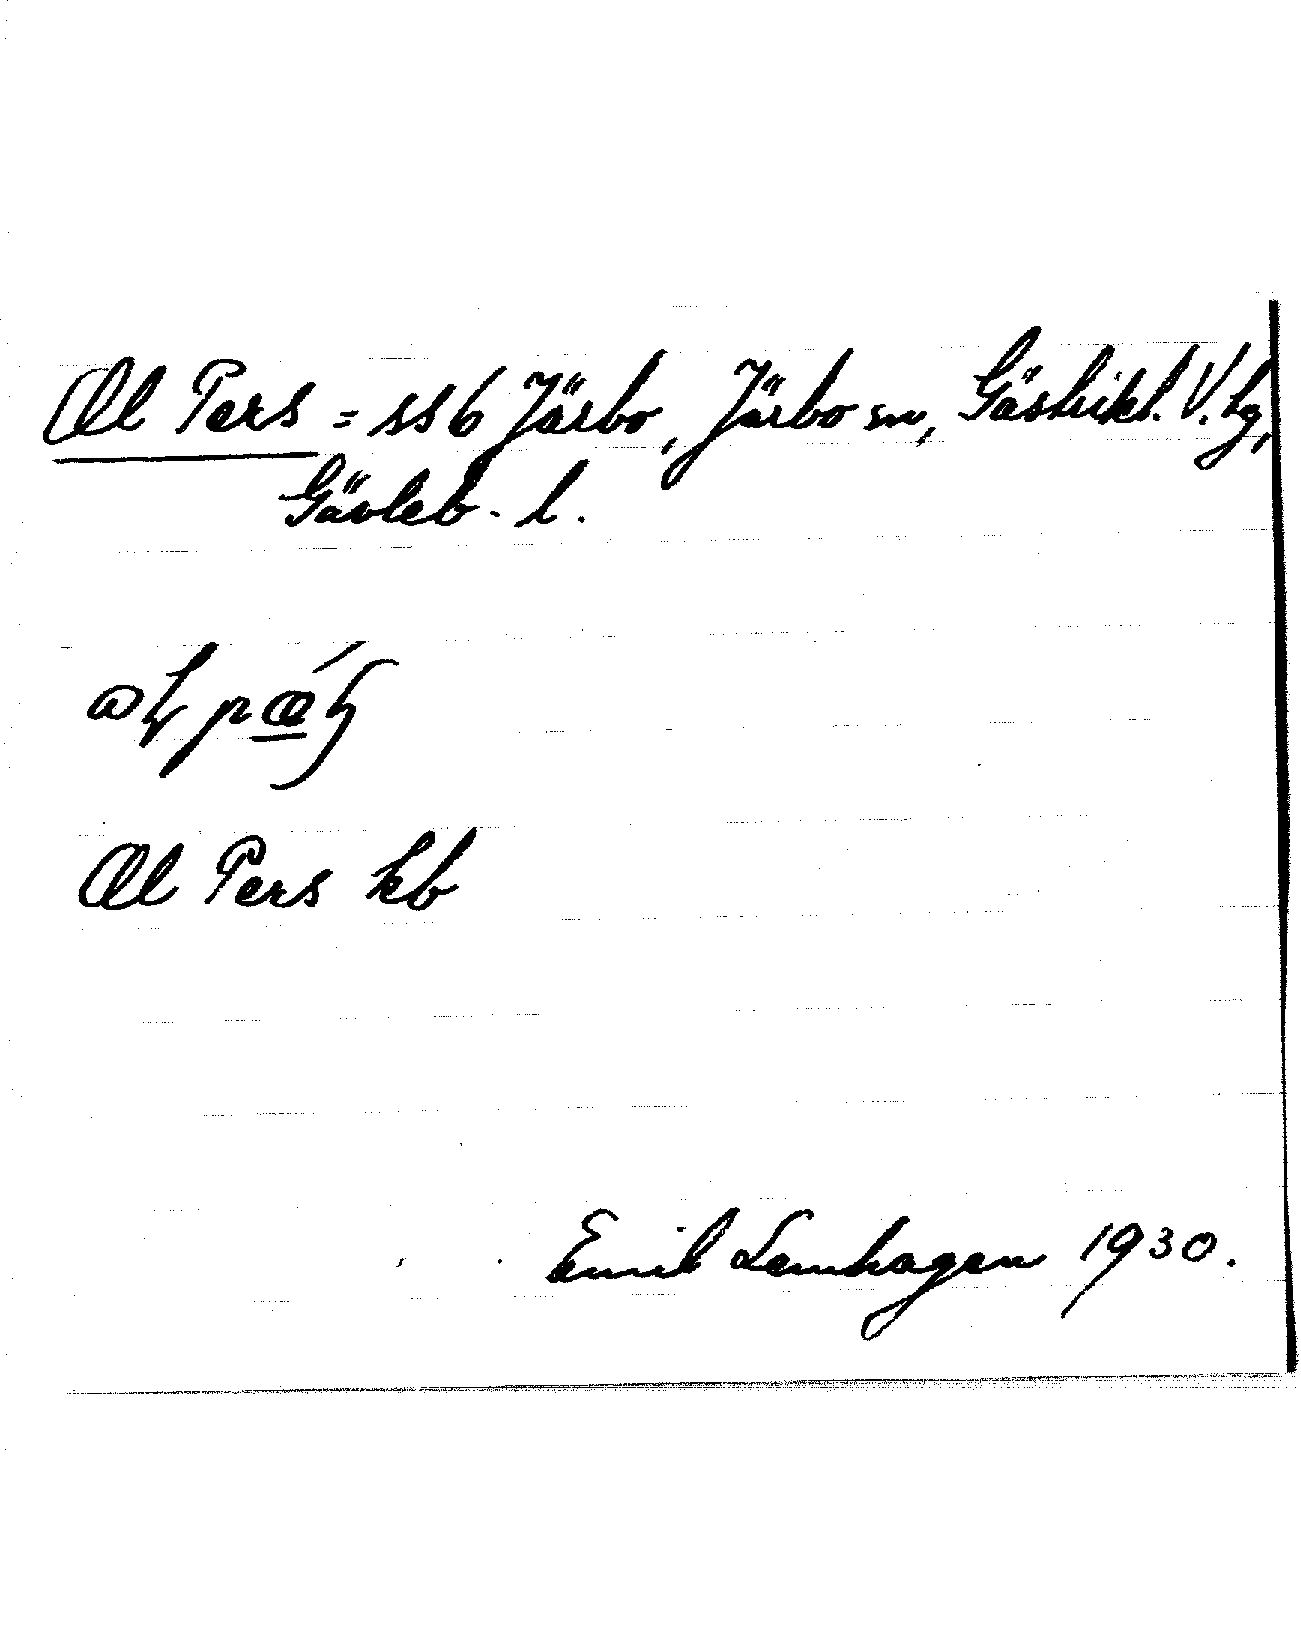 Ol Pers = ss 6 Järbo, Järbo sn, Gästrikl. V. tg,
Gävleb. l.
Ol Pers kb
Emil Lemhagen 1930.